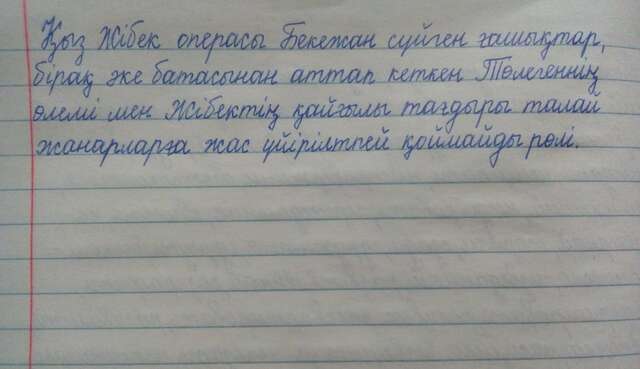 Қыз Жібек операсы Бекежан сүйген ғашықтар,
бірақ әке батасынан аттап кеткен Төлегеннің
өлемі мен Жібектің қайғылы тағдыры талай
жанарларға жас үйірілтпей қоймайды рөлі.